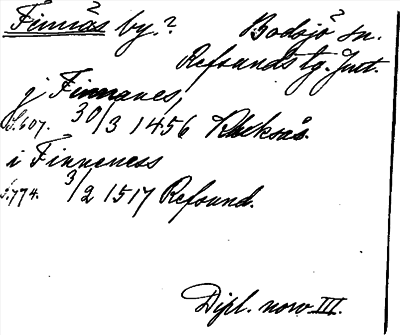 Finnäs by.? Bodsjö sn.
Refsunds tg. Jmt.
j Finnanes,
S. 607. 30/3 1456
i Finneness
S. 774. 3/2 1517 Refsund.
Dipl. norv. III.